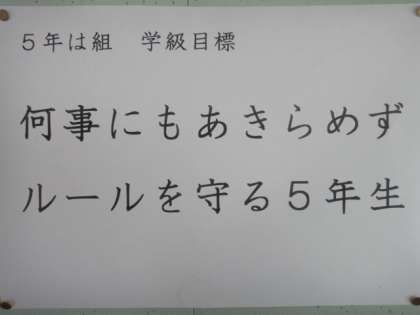 ５年は組　学級目標
何事にもあきらめず
ルールを守る５年生